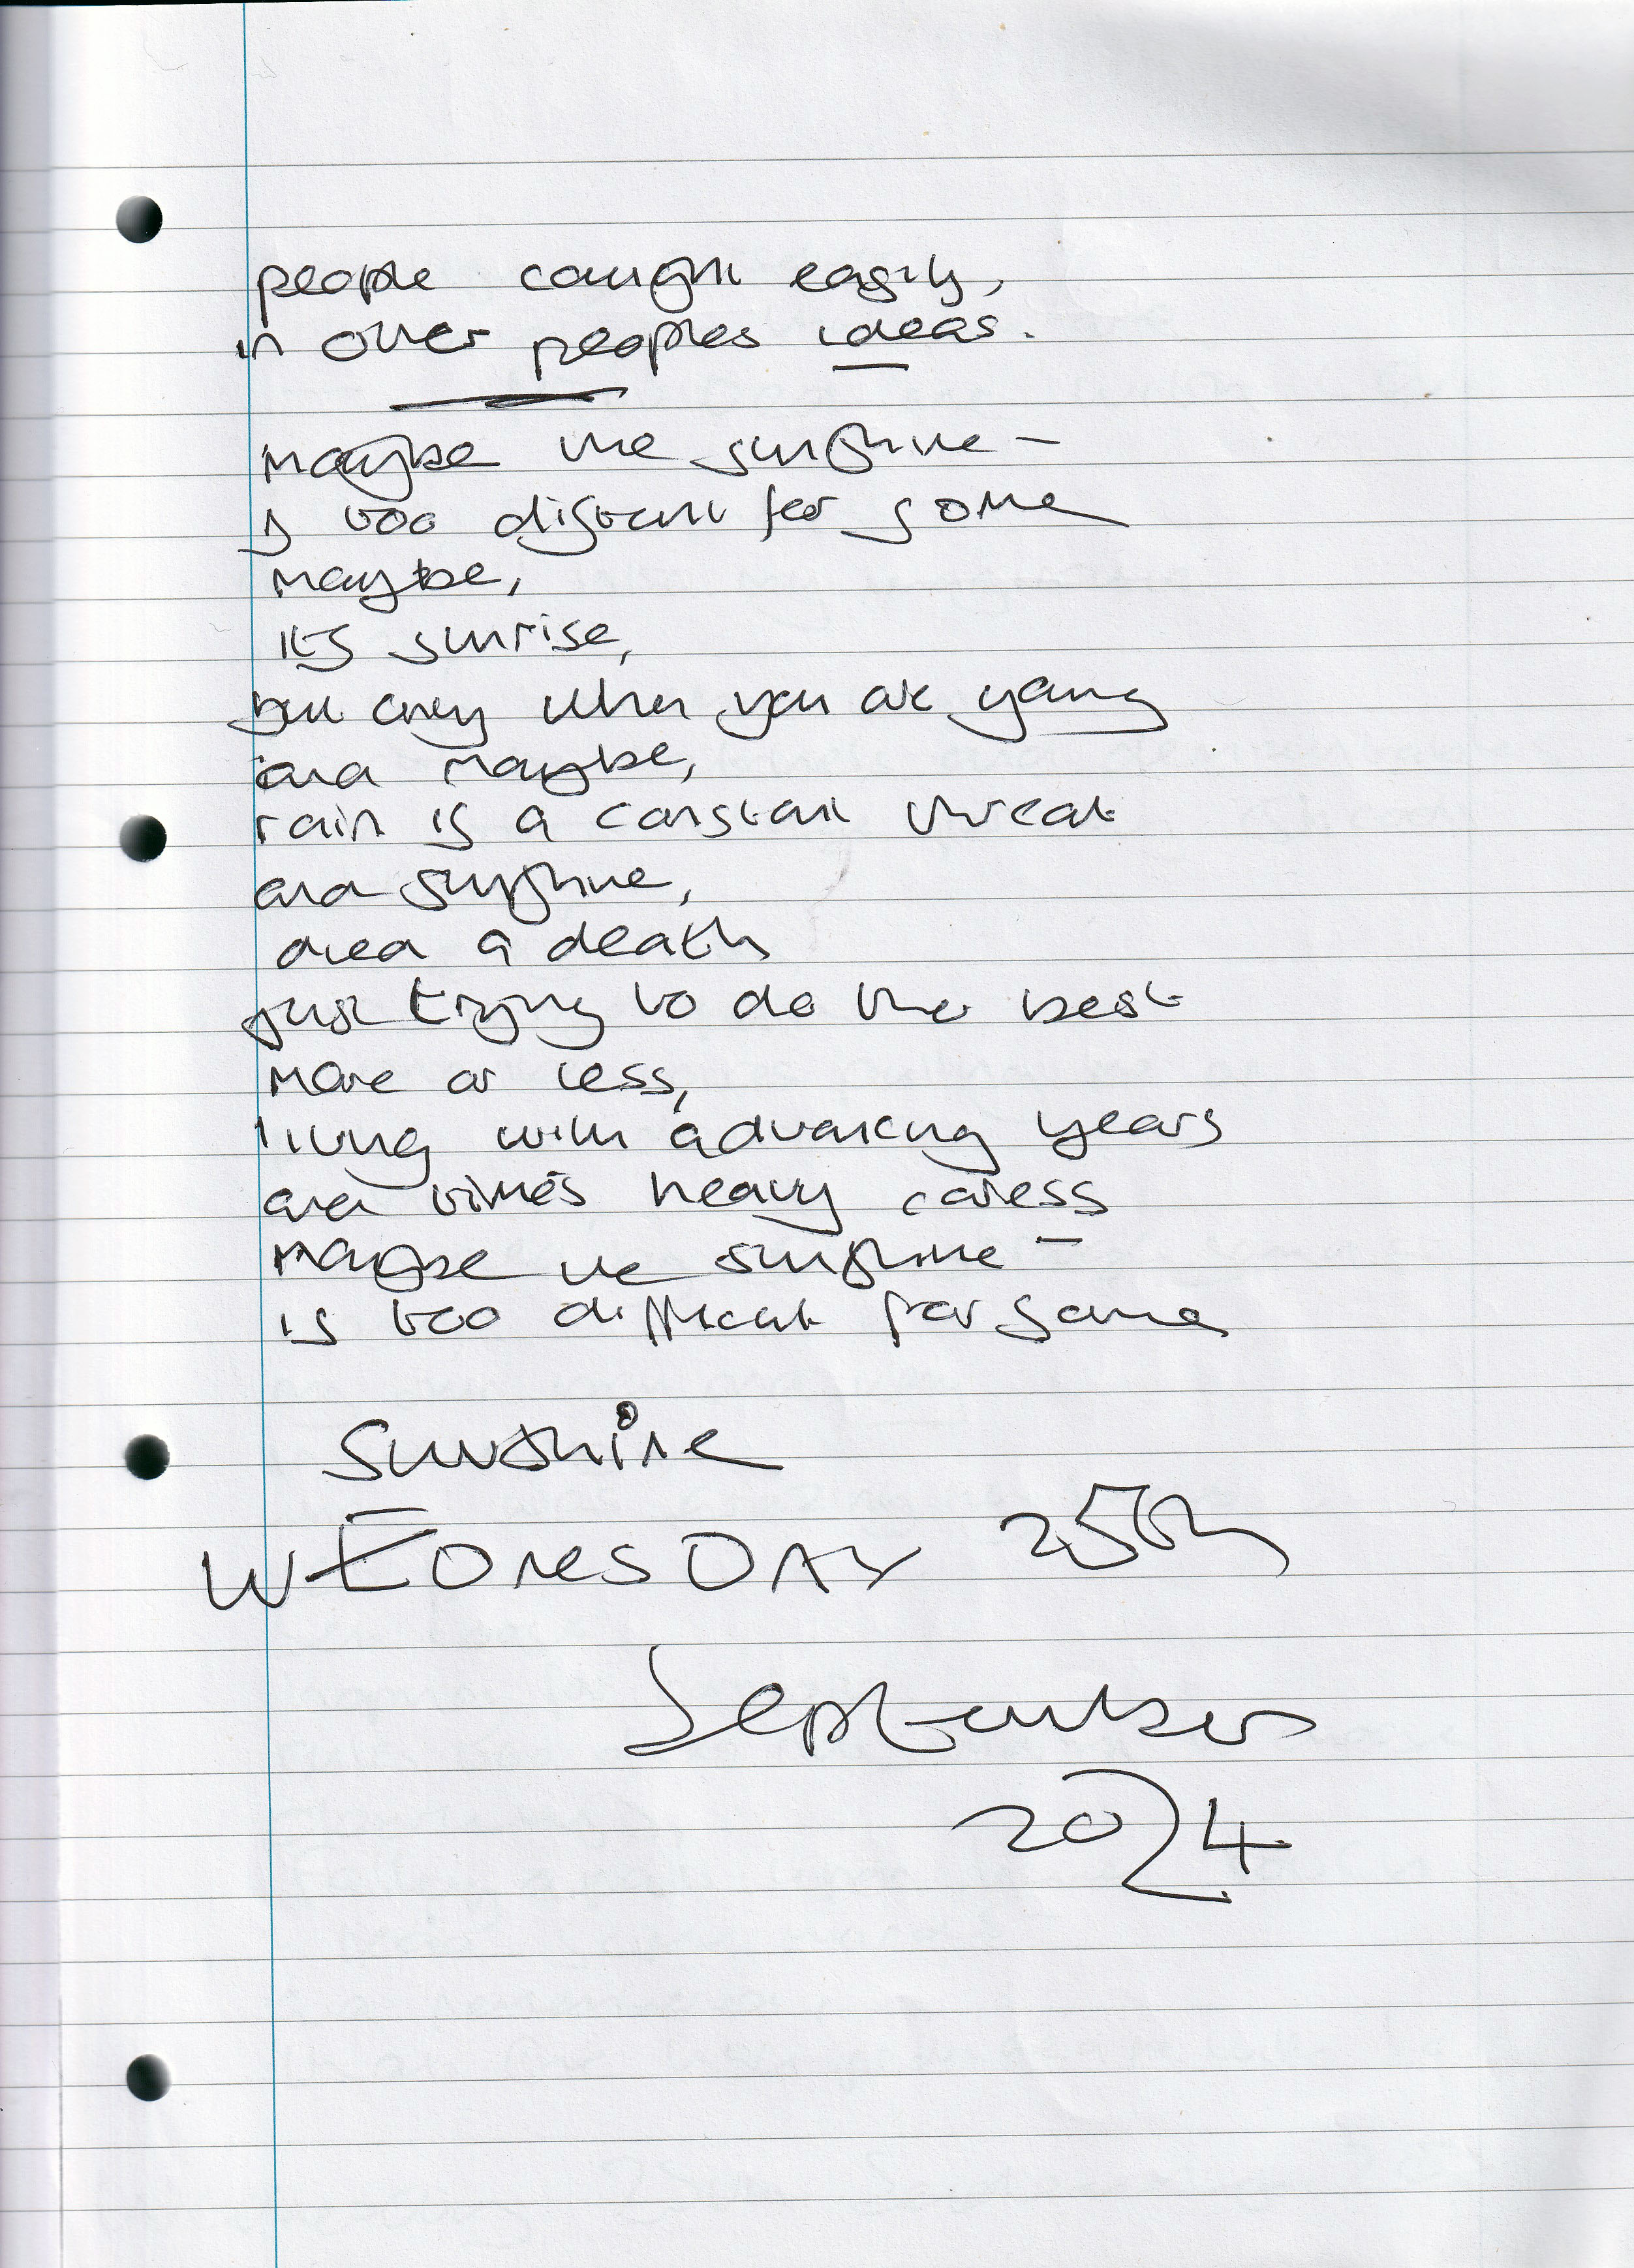 people caught easily,
in other peoples ideas.
maybe the sunshine –
is too distant for some
maybe,
its sunrise,
but only when you are young
and maybe,
rain is a constant threat
and sunshine,
died a death
just trying to do the best
more or less,
living with advancing years
and time's heavy caress
maybe the sunshine –
is too difficult for some
Sunshine
WEDNESDAY 25th
September
2024